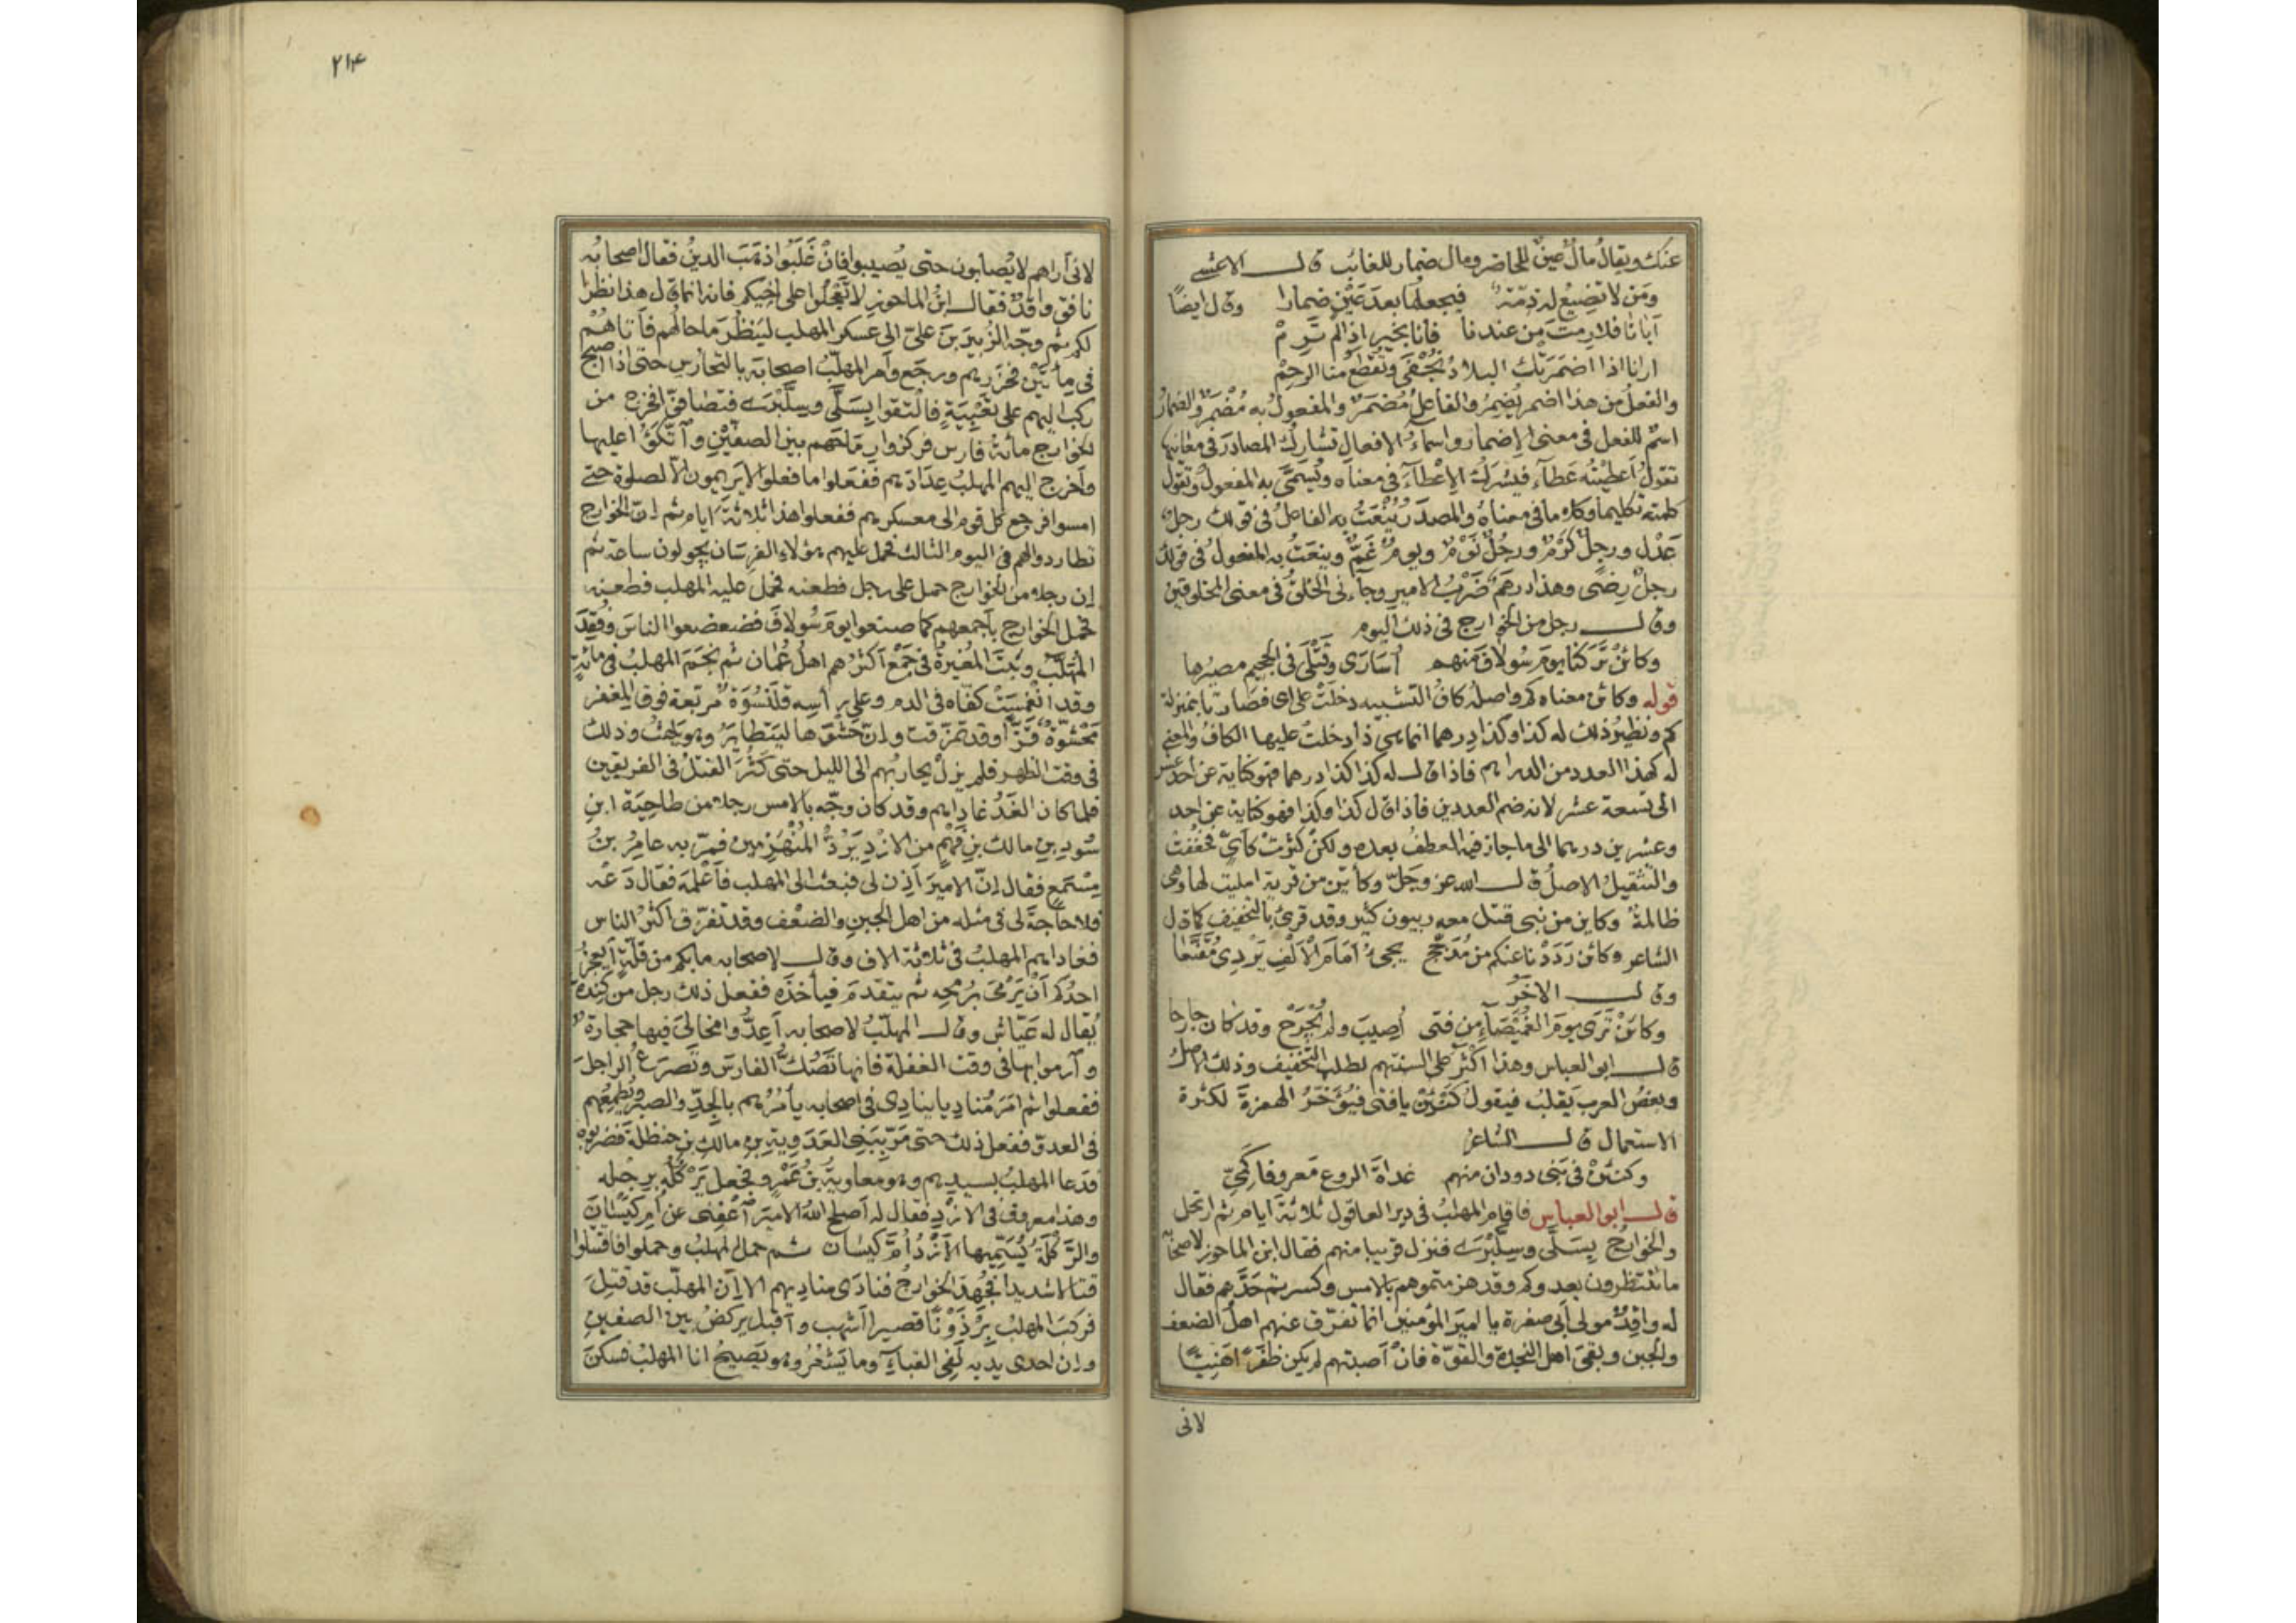 عنك ويقال مالٌ عينٌ للحاضر ومال ضمار للغائب قال الاعشى
ومَن لا تضيع له ذمّة فيجعلها بعدَ عَيْنٍ ضمارا وقال ايضًا
أبانا فلا رِمتَ مِن عندنا فانا بخير اذا لم تَرِمْ
ارانا اذا اضمَرَتْك البلادُ نُجْفَى وتُقطَعُ منا الرحِمْ
والفعلُ من هذا اضمر يُضمِرُ والفاعلُ مُضمِرٌ والمفعولُ به مُضمَرٌ والضمارُ
اسمٌ للفعل فى معنى الاِضمار واسماءُ الافعال تشارك المصادرَ فى معانيها
تقولُ اَعطيْتُه عَطآءً فيشرَك الاِعْطآءَ فى معناه ويُسمَّى به المفعولُ وتقول
كلمته تكليما وكلاما فى معناهُ والمصدَرُ يُنْعَتُ به الفاعلُ فى قولك رجلٌ
عَدْل ورجلٌ كرَمٌ ورجُلٌ نَوْمٌ ويومٌ غَمٌّ ويُنعَتُ به المفعولُ فى قولك
رجلٌ رِضًى وهذا درهمٌ ضَرْبُ الامير وجاءنى الخَلْقُ فى معنى المخلوقين
وقال رجل من الخوارج فى ذلك اليوم
وكائنْ تَركنا يومَ سُولافَ منهم اُسَارَى وقَتْلَى فى الجحيم مصيرُها
قوله وكائن معناه كم واصلُه كافُ التشبيه دخلَتْ على اى فصارتا بمنزلة
كم ونظيرُ ذلك له كذا وكذا درهما انما هى ذا دخلتْ عليها الكافُ والمعنى
له كهذا العدد من الدراهم فاذا قال له كذا كذا درهما فهو كناية عن احد عشر
الى تسعة عشر لانه ضم العددين فاذا قال كذا وكذا فهو كناية عن احد
وعشرين درهما الى ما جاز فيه العطفُ بعده ولكن كثرت كأىٍّ فخُفِّفت
والتثقيلُ الاصلُ قال الله عز وجلّ وكأيّن من قرية امليت لها وهى
ظالمةٌ وكاين من نبى قتل معه ربيون كثير وقد قرئ بالتخفيف كما قال
الشاعر وكائن رَدَدْنا عنكم من مُدَجَّجٍ يجىءُ اَمَامَ الاَلْفِ يَرْدِى مُقَنَّعا
وقال الاخَر
وكائنْ تَرَى يومَ الغُمَيْصاءِ مِن فتى اُصيبَ ولم يُجْرَحْ وقد كان جارحا
قال ابو العباس وهذا اكثرُ على السنتهم لطلب التخفيف وذلك الاصلُ
وبعضُ العرب يَقلِبُ فيقول كَيْئِنْ يا فتى فيُؤَخِّرُ الهمزةَ لكثرة
الاستعمال قال الشاعر
وكَيْئِنْ فى بَنى دودان منهم غداةَ الروع مَعروفا كَمِىِّ
قال ابو العباس فاقام المهلبُ فى دير العاقول ثلاثةَ ايام ثم ارتحل
والخوارجُ بِسَلَّى وسِلَّبْرَى فنزل قريبا منهم فقال ابن الماحوز لاصحابه
ما تنتظرون بعدوكم وقد هزمتموهم بالامس وكسرتم حَدَّهم فقال
له واقِدٌ مولى أبى صفرة يا اميرَ المؤمنين انما تفرّق عنهم اهلُ الضعف
والجبن وبقى اهل النجدة والقوّة فانْ اَصبتهم لم يكن ظَفَرًا هَنِيئًا
لانى
٢١٤
لانى أراهم لا يُصابون حتى يُصيبوا فانْ غَلَبُوا ذهَبَ الدينُ فقال اصحابُه
نافق واقدٌ فقال ابنُ الماحوز لا تَعْجَلُوا على اخيكم فانه انما قال هذا نظرا
لكم ثم وجّه الزُبيرَ بنَ علىّ الى عسكر المهلب ليَنظُرَ ما حالُهم فاتاهُمْ
فى مِأتيْن فحَزَرهم ورجَع وأمر المهلّبُ اصحابَه بالتحارس حتى اذا اصبح
ركب اليهم على تَعْبِيَةٍ فالتقوا بِسَلَّى وسِلَّبْرَى فتصافّوا فخرج من
الخوارج مائةُ فارس فركزوا رِماحَهم بين الصفيْنِ واتّكَؤُا عليها
وأخرج اليهم المهلبُ عِدَادَهم ففعلوا ما فعلوا لا يَريمون الّا لصلوة حتى
امسوا فرجع كل قوم الى معسكرهم ففعلوا هذا ثلاثةَ ايام ثم اِنّ الخوارج
تطاردوا لهم فى اليوم الثالث فحمل عليهم هؤلاء الفرسان يجولون ساعة ثم
اِن رجلا من الخوارج حمل على رجل فطعنه فحمل عليه المهلب فطعنه
فحمل الخوارج باجمعهم كما صنعوا يومَ سُولافَ فضعضعوا الناسَ وفُقِدَ
المُهَلّبُ وثبَتَ المُغيرةُ فى جَمْعٍ اكثرُهم اهلُ عُمان ثم نجَمَ المهلبُ فى مائةٍ
وقد انغمستْ كفّاه فى الدم وعلى رأسه قَلَنْسُوَةٌ مربّعة فوق المِغفر
مَحْشُوّةٌ قَزًّا وقد تمزّقت وإنّ حَشْوَها ليَتطايَرُ وهو يَلهثُ وذلك
فى وقت الظهر فلم يزلْ يحاربُهم الى الليل حتى كثُرَ القتلُ فى الفريقين
فلما كان الغَدُ غاداهم وقد كان وجّه بالامس رجلا من طاحِيَة ابنِ
سُوَدِ بن مالك بنِ فَهْمٍ من الازدِ يَرُدُّ المُنْهَزِمين فمرّ به عامرُ بنُ
مِسْمَعٍ فقال اِنّ الاميرَ اَذِن لى فبَعَثَ الى المهلب فاَعْلَمَه فقال دَعْه
فلا حاجةَ لى فى مثله من اهل الجبن والضعف وقد تفرّق اكثرُ الناس
فغاداهم المهلبُ فى ثلاثة الاف وقال لاصحابه ما بكم من قلّةٍ اَيعجزُ
احدُكم اَنْ يَرْمىَ بِرُمْحِه ثم يتقدمَ فيأخذَه ففعل ذلك رجل من كِندةَ
يُقال له عَيّاش وقال المهلّبُ لاصحابه اَعِدُّوا مَخالِىَ فيها حجارةٌ
وارموا بها فى وقت الغفلة فانها تَصُكُّ الفارسَ وتَصرَعُ الراجلَ
ففعلوا ثم امَرَ مُناديا ينادى فى اصحابه يأمُرُهم بالجِدّ والصبر ويُطمِعُهم
فى العدوّ ففعل ذلك حتى مَرّ بِبَنى العَدَوِيّةِ بن مالك بن حنظلة فضربوه
فدَعا المهلبُ بسيدهم وهو معاويةُ بنُ عَمْرٍو فجعل يَرْكُلُه برِجْله
وهذا معروف فى الازد فقال له اَصلح اللهُ الاميرَ اَعْفِنى عن اُمِّ كَيْسانَ
والرَّكْلَةُ تُسَمّيها الاَزْدُ اُمَّ كَيسان ثم حمل المهلبُ وحملوا فاقتتلوا
قتالا شديدا فجُهِدَ الخوارجُ فنادَى مناديهم الا اِنّ المهلّب قد قُتِلَ
فركبَ المهلبُ بِرْذَوْنًا قصيرا اَشهب واَقبل يركضُ بين الصفينِ
وإن احدى يديه لَفِى القباءِ وما يَشعُرُ وهو يَصيحُ انا المهلبُ فسكنَ